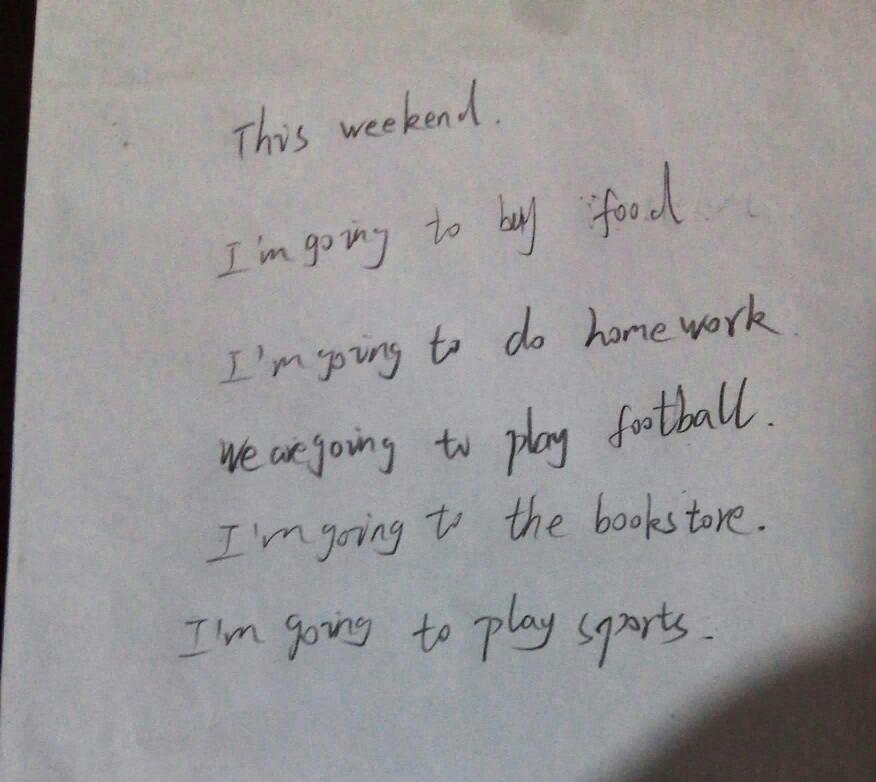 This weekend.
I'm going to buy food
I'm going to do homework.
We are going to play football.
I'm going to the bookstore.
I'm going to play sports.